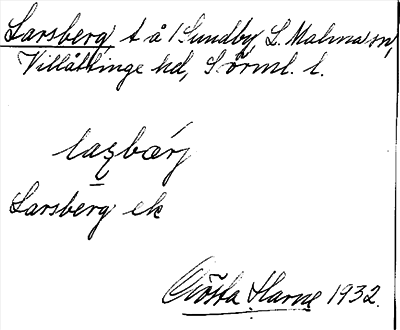 Larsberg, t å 1 Sundby, L. Malma sn,
Villåttinge hd, Sörml. l.
laʂbærj
Larsberg ek
Gösta Harne 1932.